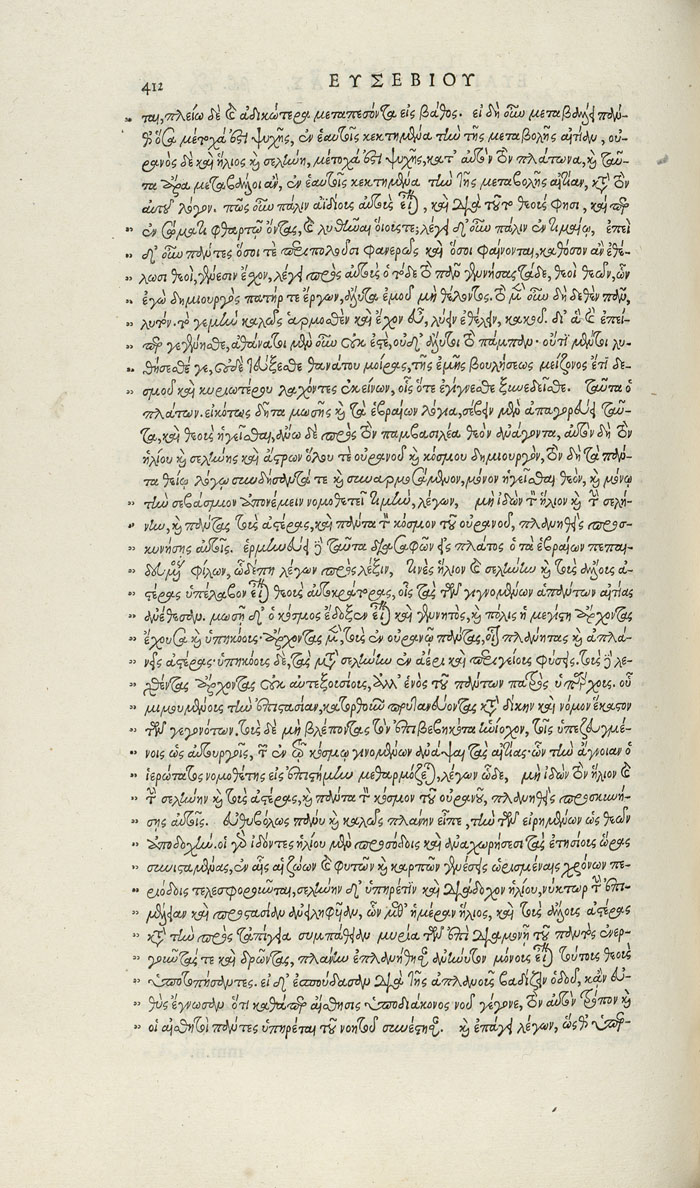 412 ΕΥΣΕΒΙΟΥ
" ται, πλείω δὲ καὶ ἀδικώτερα μεταπεσόντα εἰς βάθος. εἰ δὴ οὖν μεταβάλλει πάν-
θ' ὅσα μέτοχά ἐστι ψυχῆς, ἐν ἑαυτοῖς κεκτημένα τὴν τῆς μεταβολῆς αἰτίαν, οὐ-
ρανὸς δὲ καὶ ἥλιος καὶ σελήνη, μέτοχά ἐστι ψυχῆς, κατ' αὐτὸν τὸν πλάτωνα, καὶ ταῦ-
τα ἄρα μεταβάλλοι ἂν, ἐν ἑαυτοῖς κεκτημένα τὴν τῆς μεταβολῆς αἰτίαν, κατὰ τὸν
αὐτοῦ λόγον. πῶς οὖν πάλιν ἀϊδίους αὐτοὺς εἶναι, καὶ διὰ τοῦτο θεούς φησι, καίπερ
" ἐν σώματι φθαρτῷ ὄντας, καὶ λυθῆναι οἵους τε; λέγει δ' οὖν πάλιν ἐν τιμαίῳ, ἐπεὶ
" δ' οὖν πάντες ὅσοι τὲ περιπολοῦσι φανερῶς καὶ ὅσοι φαίνονται, καθόσον ἂν ἐθέ-
" λωσι θεοὶ, γένεσιν ἔχον, λέγει πρὸς αὐτοὺς ὁ τόδε τὸ πᾶν γεννήσας τάδε, θεοὶ θεῶν, ὧν
" ἐγὼ δημιουργὸς πατήρ τε ἔργων, ἄλυτα ἐμοῦ μὴ θέλοντος. τὸ μὲν οὖν δὴ δεθὲν πᾶν,
" λυτόν. τό γε μὴν καλῶς ἁρμοσθὲν καὶ ἔχον εὖ, λύειν ἐθέλειν, κακοῦ. δι' ἃ καὶ ἐπεί-
" περ γεγένησθε, ἀθάνατοι μὲν οὖν οὐκ ἐστὲ, οὐδ' ἄλυτοι τὸ πάμπαν· οὔτι μέντοι λυ-
" θήσεσθέ γε, οὐδὲ τεύξεσθε θανάτου μοίρας, τῆς ἐμῆς βουλήσεως μείζονος ἔτι δε-
" σμοῦ καὶ κυριωτέρου λαχόντες ἐκείνων, οἷς ὅτε ἐγίγνεσθε ξυνεδεῖσθε. ταῦτα ὁ
πλάτων. εἰκότως δῆτα μωσῆς καὶ τὰ ἑβραίων λόγια, σέβειν μὲν ἀπαγορεύει ταῦ-
τα, καὶ θεοὺς ἡγεῖσθαι, ἄνω δὲ πρὸς τὸν παμβασιλέα θεὸν ἀνάγοντα, αὐτὸν δὴ τὸν
ἡλίου καὶ σελήνης καὶ ἄστρων ὅλου τε οὐρανοῦ καὶ κόσμου δημιουργὸν, τὸν δὴ τὰ πάν-
τα θείῳ λόγῳ συνδήσαντά τε καὶ συναρμοσάμενον, μόνον ἡγεῖσθαι θεὸν, καὶ μόνῳ
" τὴν σεβάσμιον ἀπονέμειν νομοθετεῖ τιμὴν, λέγων, μὴ ἰδὼν τὸν ἥλιον καὶ τὴν σελή-
" νην, καὶ πάντας τοὺς ἀστέρας, καὶ πάντα τὸν κόσμον τοῦ οὐρανοῦ, πλανηθεὶς προσ-
" κυνήσῃς αὐτοῖς. ἑρμηνεύει δὲ ταῦτα διασαφῶν εἰς πλάτος ὁ τὰ ἑβραίων πεπαι-
" δευμένος φίλων, ὧδέ πη λέγων πρὸς λέξιν, τινὲς ἥλιον καὶ σελήνην καὶ τοὺς ἄλλους ἀ-
" στέρας ὑπέλαβον εἶναι θεοὺς αὐτοκράτορας, οἷς τὰς τῶν γιγνομένων ἁπάντων αἰτίας
" ἀνέθεσαν. μωσῆ δ' ὁ κόσμος ἔδοξεν εἶναι καὶ γεννητὸς, καὶ πόλις ἡ μεγίστη ἄρχοντας
" ἔχουσα καὶ ὑπηκόους· ἄρχοντας μὲν, τοὺς ἐν οὐρανῷ πάντας, ὅσοι πλάνητας καὶ ἀπλα-
" νεῖς ἀστέρας· ὑπηκόους δὲ, τὰς μετὰ σελήνην ἐν ἀέρι καὶ περιγείους φύσεις. τοὺς δὲ λε-
" χθέντας ἄρχοντας οὐκ αὐτεξουσίους, ἀλλ' ἑνὸς τοῦ πάντων πατρὸς ὑπάρχους. οὗ
" μιμουμένους τὴν ἐπιστασίαν, κατορθοῦν πρυτανεύοντας κατὰ δίκην καὶ νόμον ἕκαστον
" τῶν γεγονότων. τοὺς δὲ μὴ βλέποντας τὸν ἐπιβεβηκότα ἡνίοχον, τοῖς ὑπεζευγμέ-
" νοις ὡς αὐτουργοῖς, τῶν ἐν τῷ κόσμῳ γινομένων ἀνάψαι τὰς αἰτίας· ὧν τὴν ἄγνοιαν ὁ
" ἱερώτατος νομοθέτης εἰς ἐπιστήμην μεθαρμόζεται, λέγων ὧδε, μὴ ἰδὼν τὸν ἥλιον καὶ
" τὴν σελήνην καὶ τοὺς ἀστέρας, καὶ πάντα τὸν κόσμον τοῦ οὐρανοῦ, πλανηθεὶς προσκυνή-
" σῃς αὐτοῖς. εὐθυβόλως πάνυ καὶ καλῶς πλάνην εἶπε, τὴν τῶν εἰρημένων ὡς θεῶν
" ἀποδοχήν. οἱ γὰρ ἰδόντες ἡλίου μὲν προσόδοις καὶ ἀναχωρήσεσι τὰς ἐτησίους ὥρας
" συνισταμένας, ἐν αἷς αἱ ζώων καὶ φυτῶν καὶ καρπῶν γενέσεις ὡρισμέναις χρόνων πε-
" ριόδοις τελεσφοροῦνται, σελήνην δ' ὑπηρέτιν καὶ διάδοχον ἡλίου, νύκτωρ τὴν ἐπι-
" μέλειαν καὶ προστασίαν ἀνειληφυῖαν, ὧν μεθ' ἡμέραν ἥλιος, καὶ τοὺς ἄλλους ἀστέρας
" κατὰ τὴν πρὸς τἀπίγεια συμπάθειαν μυρία τῶν ἐπὶ διαμονῇ τοῦ παντὸς ἐνερ-
" γοῦντάς τε καὶ δρῶντας, πλάνην ἐπλανήθησαν ἀνήνυτον μόνους εἶναι τούτους θεοὺς
" ὑποτοπήσαντες. εἰ δ' ἐσπούδασαν διὰ τῆς ἀπλανοῦς βαδίζειν ὁδοῦ, κἂν εὐ-
" θὺς ἔγνωσαν ὅτι καθάπερ αἴσθησις ὑποδιάκονος νοῦ γέγονε, τὸν αὐτὸν τρόπον καὶ
" οἱ αἰσθητοὶ πάντες ὑπηρέται τοῦ νοητοῦ συνέστησαν. καὶ ἐπάγει λέγων, ὥσθ' ὑπερ-